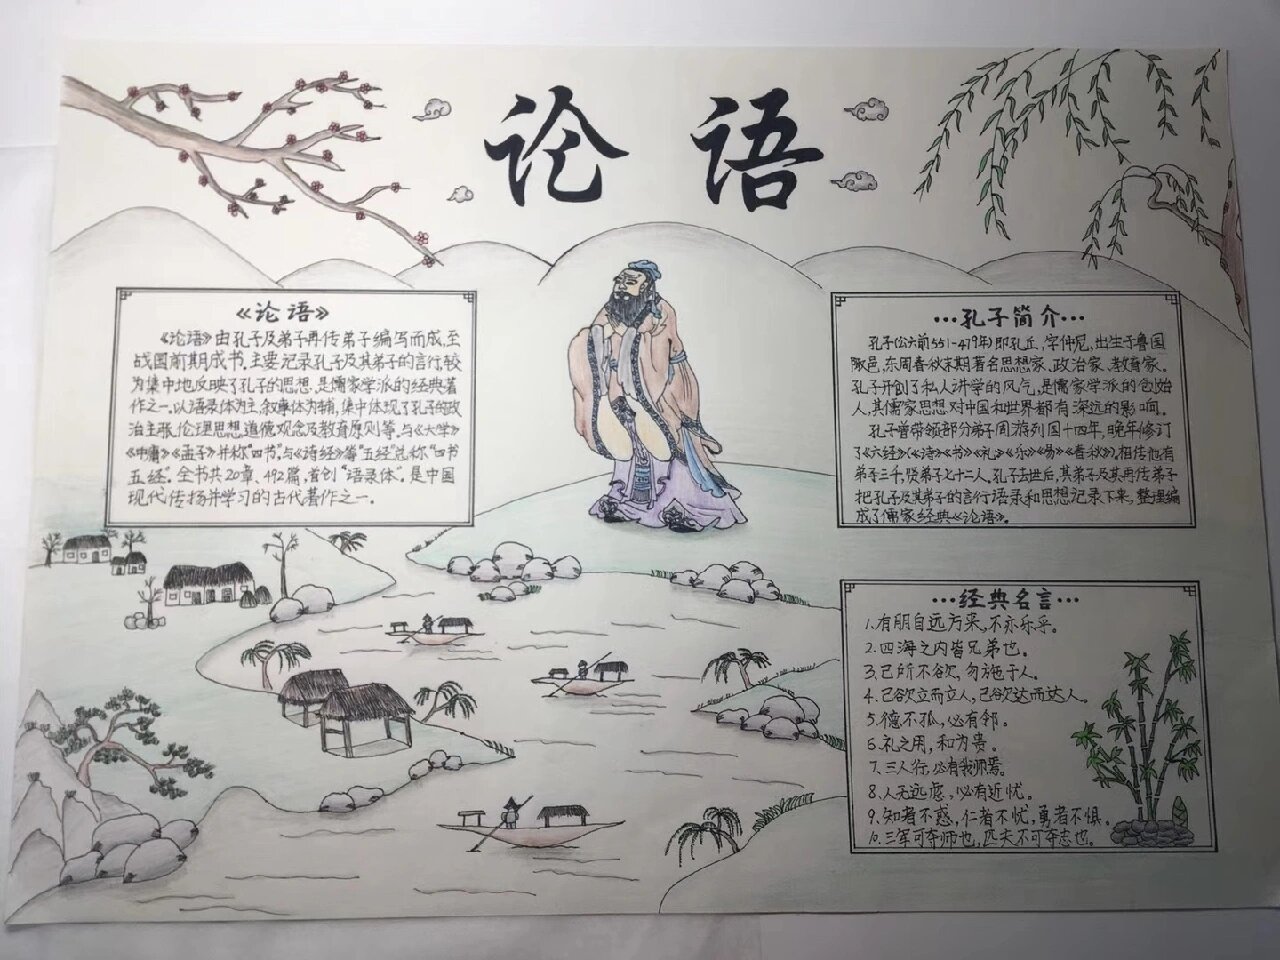 论语
《论语》
《论语》由孔子及弟子再传弟子编写而成,至
战国前期成书。主要记录孔子及其弟子的言行,较
为集中地反映了孔子的思想,是儒家学派的经典著
作之一。以语录体为主,叙事体为辅,集中体现了孔子的政
治主张,伦理思想,道德观念及教育原则等。与《大学》
《中庸》《孟子》并称"四书",与《诗经》等"五经",总称"四书
五经"。全书共20章、492篇,首创"语录体"。是中国
现代传扬并学习的古代著作之一.
•••孔子简介•••
孔子(公元前551-479年)即孔丘,字仲尼,出生于鲁国
陬邑,东周春秋末期著名思想家、政治家、教育家。
孔子开创了私人讲学的风气,是儒家学派的创始
人,其儒家思想对中国和世界都有深远的影响.
孔子曾带领部分弟子周游列国十四年,晚年修订
了《六经》(《诗》《书》《礼》《乐》《易》《春秋》),相传他有
弟子三千,贤弟子七十二人。孔子去世后,其弟子及其再传弟子
把孔子及其弟子的言行语录和思想记录下来,整理编
成了儒家经典《论语》。
•••经典名言•••
1.有朋自远方来,不亦乐乎。
2.四海之内皆兄弟也。
3.己所不欲,勿施于人。
4.己欲立而立人,己欲达而达人。
5.德不孤,必有邻。
6.礼之用,和为贵。
7.三人行,必有我师焉。
8.人无远虑,必有近忧。
9.知者不惑,仁者不忧,勇者不惧.
10.三军可夺师也,匹夫不可夺志也。